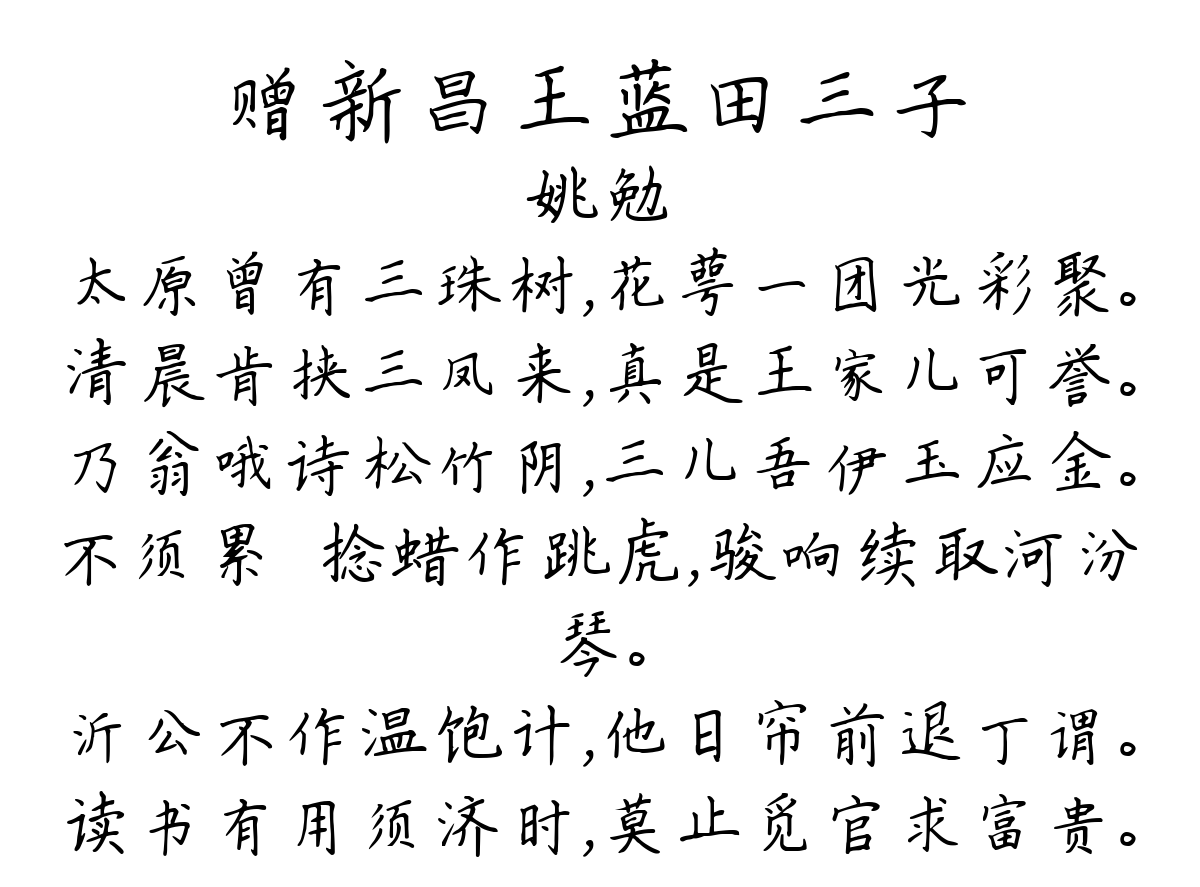 赠新昌王蓝田三子
姚勉
太原曾有三珠树,花萼一团光彩聚。
清晨肯挟三凤来,真是王家儿可誉。
乃翁哦诗松竹阴,三儿吾伊玉应金。
不须累 捻蜡作跳虎,骏响续取河汾
琴。
沂公不作温饱计,他日帘前退丁谓。
读书有用须济时,莫止觅官求富贵。